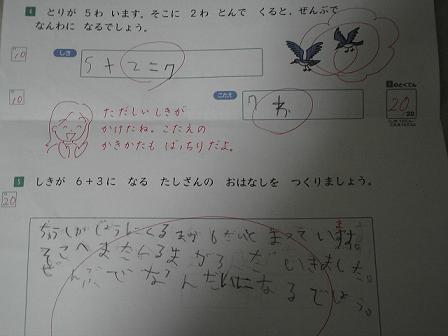 4 とりが 5わ います。そこに 2わ とんで くると、ぜんぶで
なんわに なるでしょう。
しき
10
5+2=7
こたえ
10
7わ
とくてん
20
20
ただしいしきが
かけたね。こたえの
かきかたも ばっちりだよ。
5 しきが 6+3に なる たしざんの おはなしを つくりましょう。
20
ちゅうしゃじょうにくるまが6だいとまっています。
ま
そこへまたくるまが3だいきました。
ぜんぶでなんだいになるでしょう。